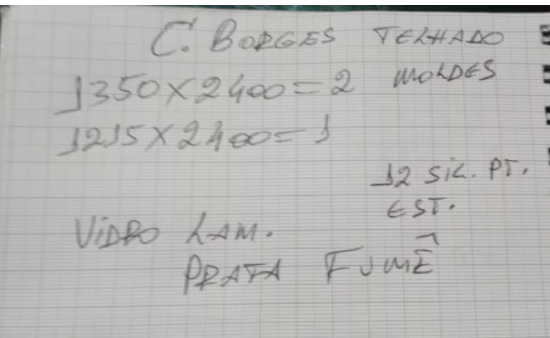 C. BORGES TELHADO
1350 X 2400 = 2 MOLDES
1215 X 2400 = 1
12 SIL. PT.
EST.
VIDRO LAM.
PRATA FUMÊ